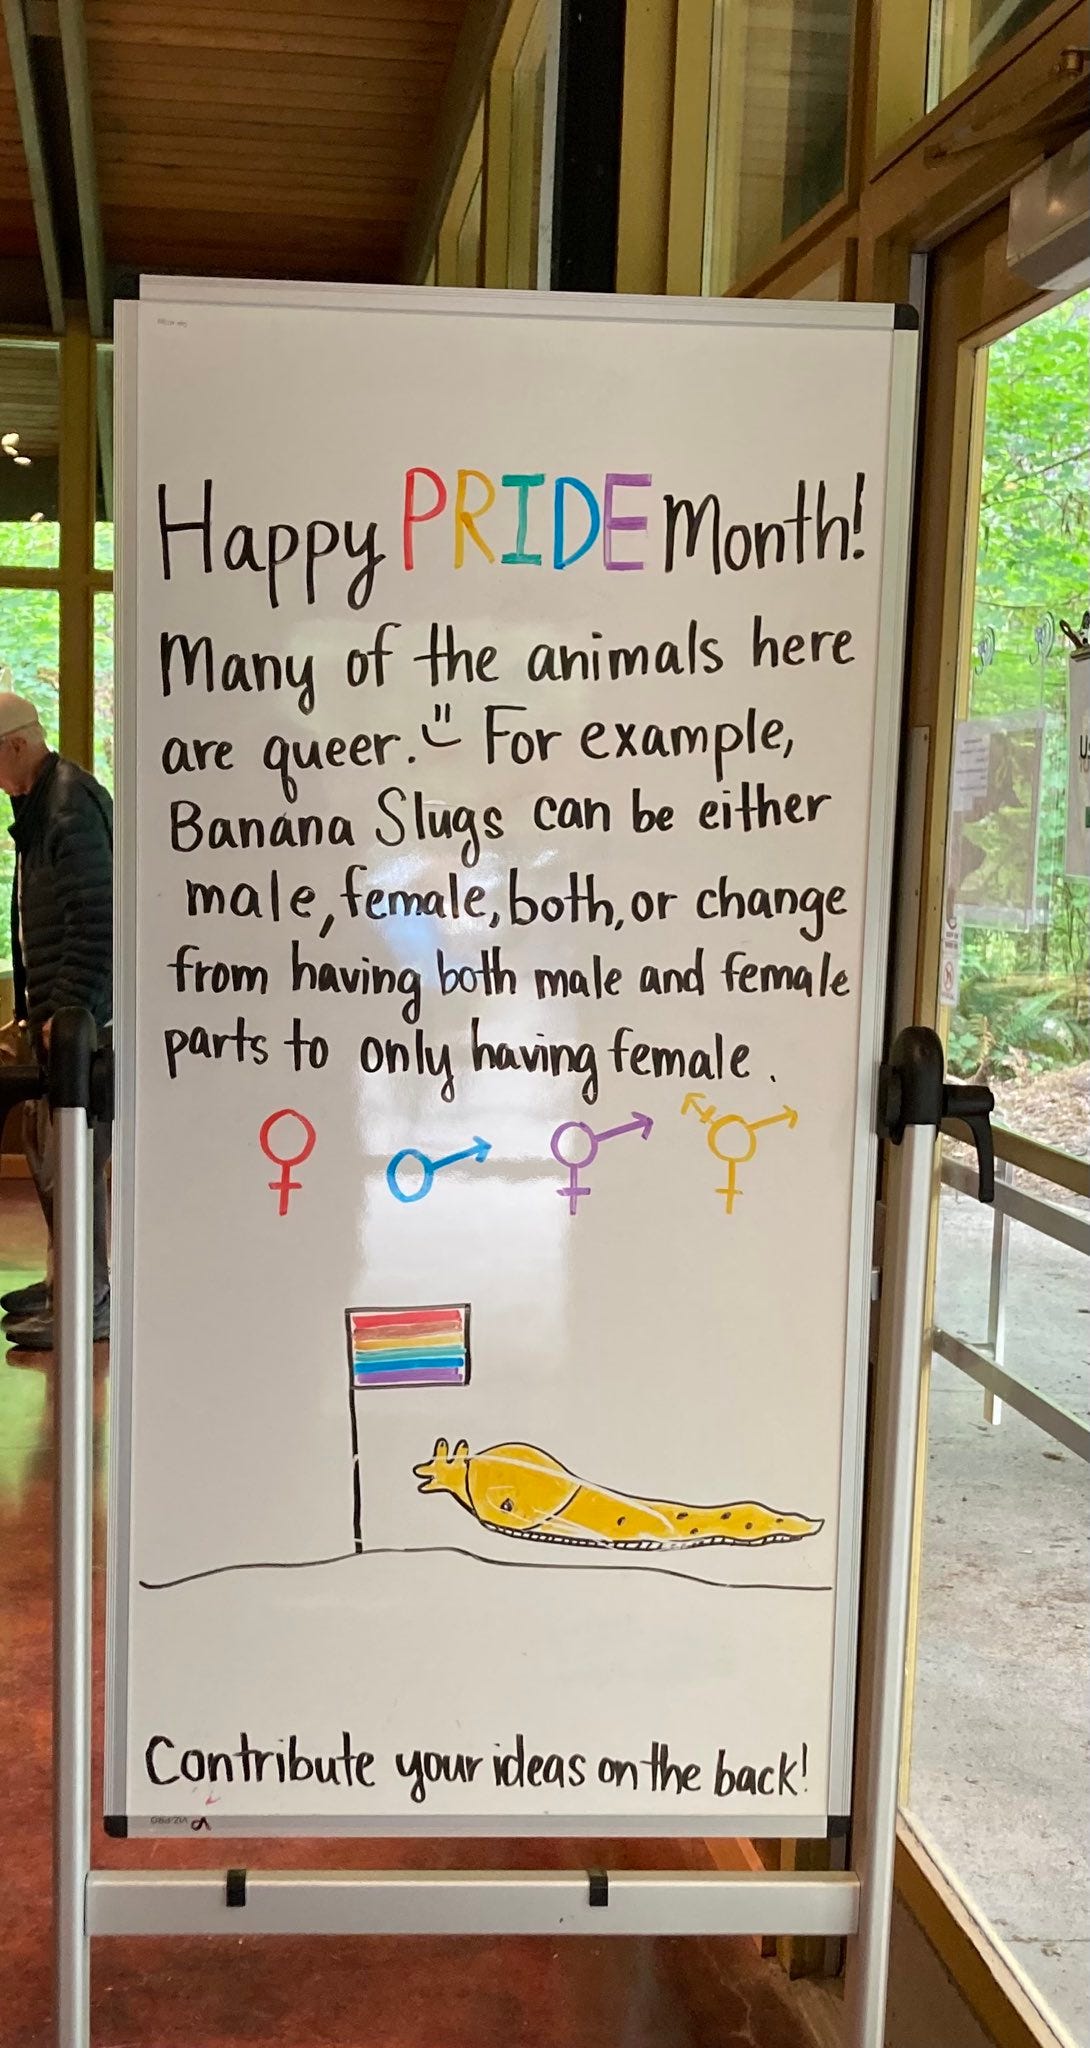 Happy PRIDE Month!
Many of the animals here
are queer. For example,
Banana Slugs can be either
male, female, both, or change
from having both male and female
parts to only having female.
Contribute your ideas on the back!